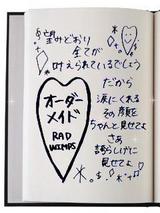 望みどおり
全てが
叶えられているでしょう
だから
涙にくれる
その顔を
ちゃんと見せてよ
さあ
誇らしげに
見せてよ
オーダー
メイド
RAD
WIMPS